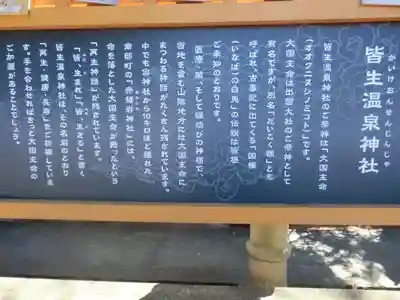 かいけおんせんじんじゃ
皆生温泉神社
皆生温泉神社のご祭神は「大国主命
(オオクニヌシノミコト)」です。
大国主命は出雲大社のご祭神として
有名ですが、別名「だいこく様」とも
呼ばれ、古事記に出てくる「因幡
(いなば)の白兎」の伝説は皆様
ご承知のとおりです。
医療・薬、そして縁結びの神様で、
当地を含む山陰地方には大国主命に
まつわる神話がたくさん残されています。
中でも当神社から10キロほど離れた
南部町の「赤猪岩神社」には、
命を落とした大国主命が甦ったという
「再生神話」が残されています。
「皆、生まれ」「皆、生きる」と書く
皆生温泉神社は、その名前のとおり
「再生・健康・長寿」をご祈願していま
す。手を合わせればきっと大国主命の
ご加護があることでしょう。